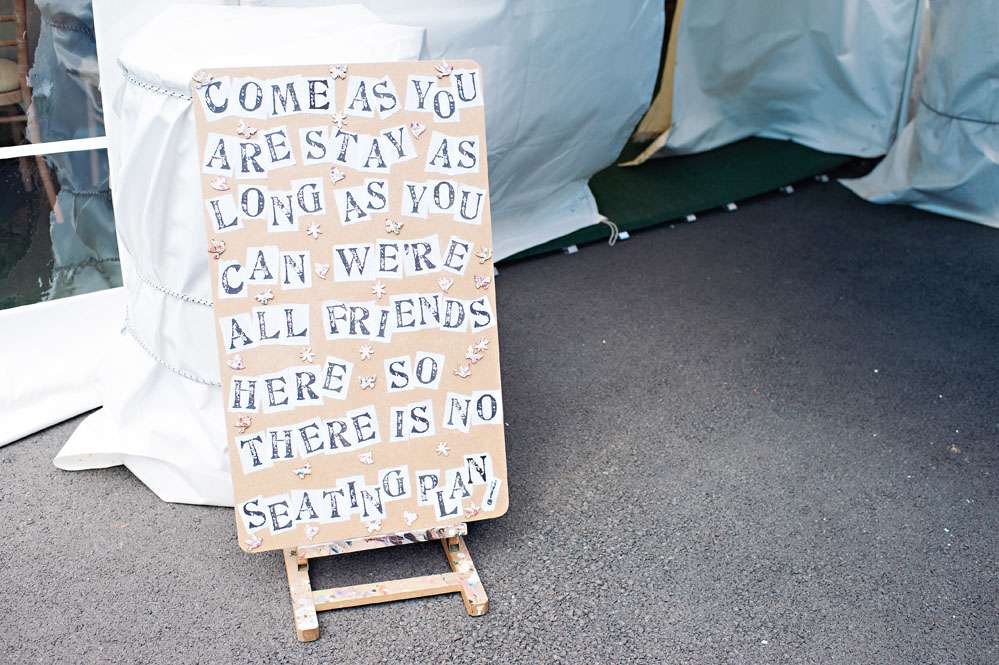 COME AS YOU
ARE STAY AS
LONG AS YOU
CAN WE'RE
ALL FRIENDS
HERE SO
THERE IS NO
SEATING PLAN!